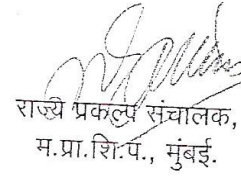 राज्य प्रकल्प संचालक,
म.प्रा.शि.प., मुंबई.